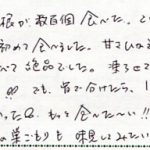 根が数百個 食べた。
初めて食べました。甘くひ
べて絶品でした。凍らせて
!! でも、皆で分けたら、1
ったQ. もっと食べた〜い!!
の巣ごもりも味見してみたい